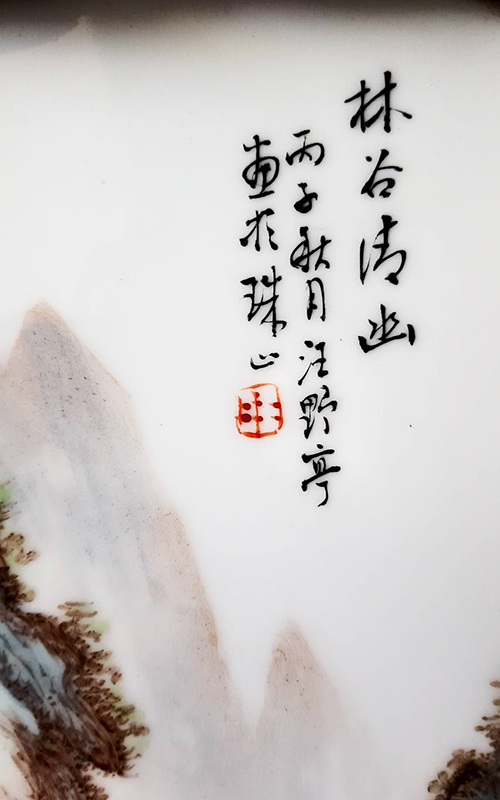 林谷清幽
丙子秋月汪野亭
画於珠山